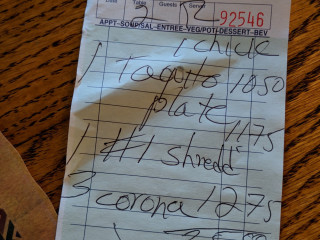 Date Table Guests Server
92546
APPT-SOUP/SAL-ENTREE-VEG/POT-DESSERT-BEV
1 chick
1 Taquito 10 50
plate
1 #1 shredd 11 75
3 corona 12 75